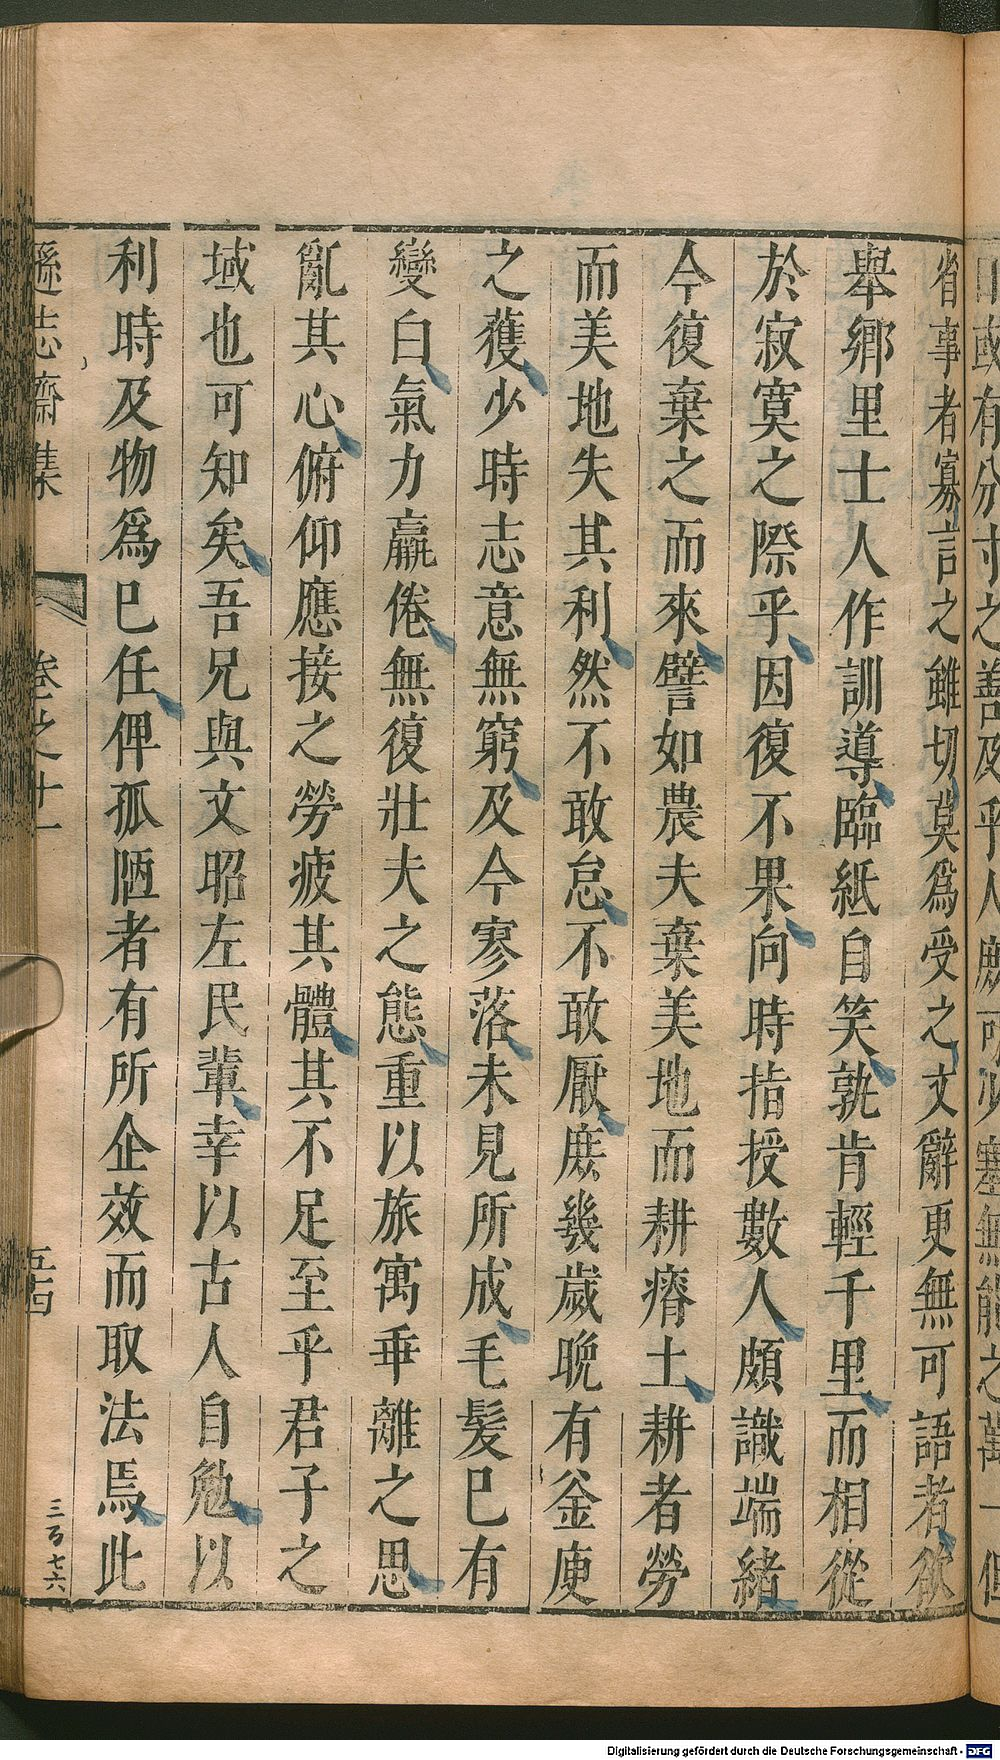 日或有分寸之善及乎人庶可少塞無能之萬一但
省事者寡言之雖切莫爲受之文辭更無可語者欲
舉鄉里士人作訓導臨紙自笑孰肯輕千里而相從
於寂寞之際乎因復不果向時指授數人頗識端緒
今復棄之而來譬如農夫棄美地而耕瘠土耕者勞
而美地失其利然不敢怠不敢厭庶幾歲晚有釜庾
之獲少時志意無窮及今寥落未見所成毛髮已有
變白氣力羸倦無復壯夫之態重以旅寓乖離之思
亂其心俯仰應接之勞疲其體其不足至乎君子之
域也可知矣吾兄與文昭左民輩幸以古人自勉以
利時及物爲己任俾孤陋者有所企效而取法焉此
遜志齋集 卷之十一 五十四
三百七六
Digitalisierung gefördert durch die Deutsche Forschungsgemeinschaft - DFG